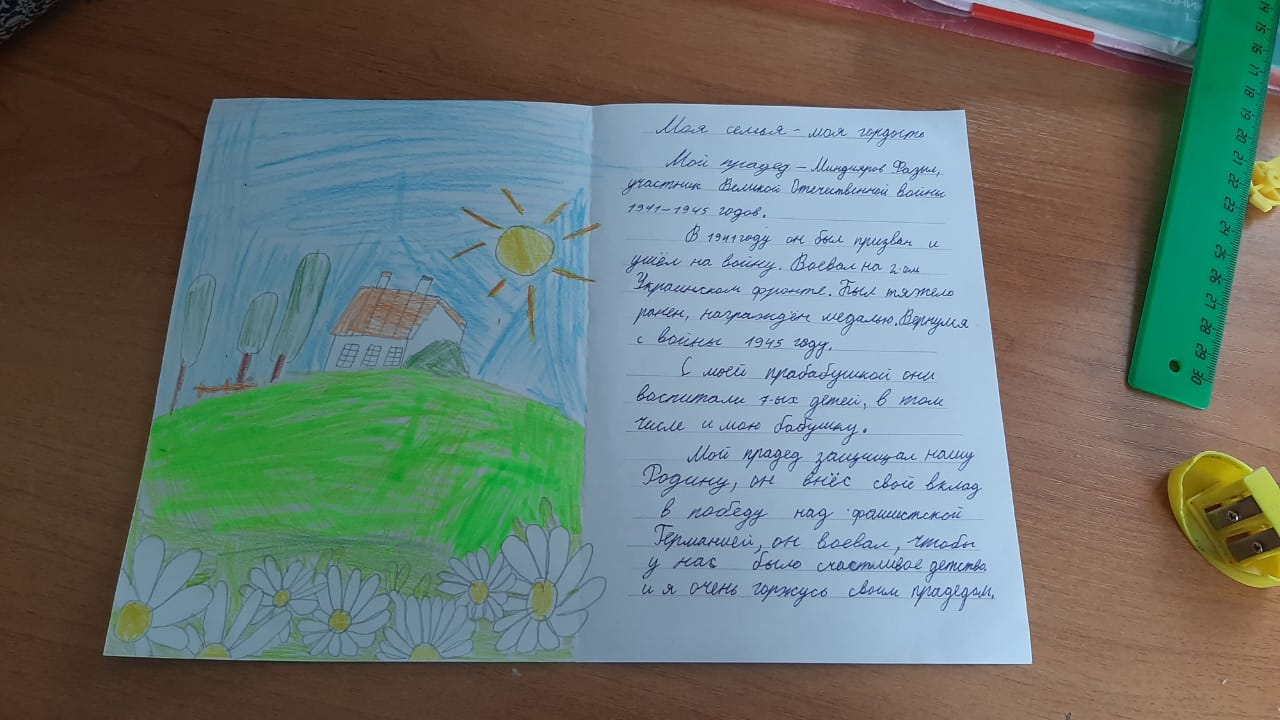 Моя семья - моя гордость
Мой прадед - Миндияров Фазыл,
участник Великой Отечественной войны
1941-1945 годов.
В 1941 году он был призван и
ушёл на войну. Воевал на 2-ом
Украинском фронте. Был тяжело
ранен, награждён медалью. Вернулся
с войны 1945 году.
С моей прабабушкой они
воспитали 7-ых детей, в том
числе и мою бабушку.
Мой прадед защищал нашу
Родину, он внёс свой вклад
в победу над фашистской
Германией, он воевал, чтобы
у нас было счастливое детство
и я очень горжусь своим прадедом.
14 15 16 17 18 19 20 21 22 23 24 25 26 27 28 29 30